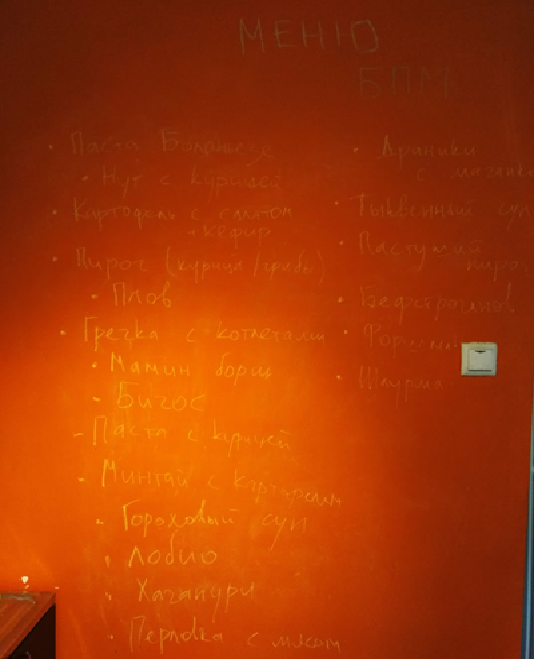 МЕНЮ
БПМ
• Паста Болоньезе
• Нут с курицей
• Картофель с
+ кефир
• Пирог (курица/грибы)
• Плов
• Гречка с котлетами
• Мамин борщ
• Бигос
- Паста с курицей
• Минтай с картофелем
• Гороховый суп
• Лобио
• Хачапури
• Перловка с мясом
• Драники
с мачанкой
• Тыквенный суп
• Пастуший
пирог
• Бефстроганов
• Шаурма